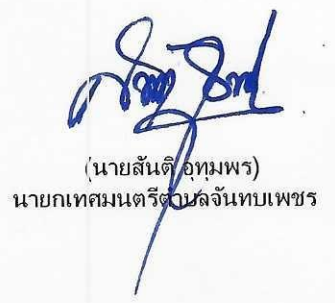 (นายสันติ อุทุมพร)
นายกเทศมนตรีตำบลจันทบเพชร